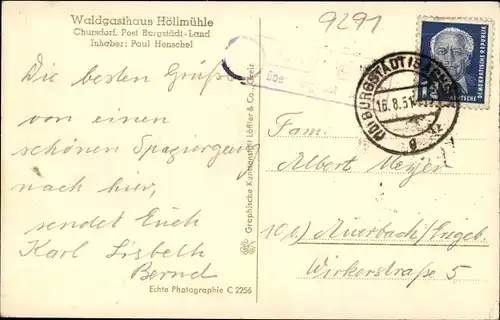 Waldgasthaus Höllmühle
Chursdorf, Post Burgstädt-Land
Inhaber: Paul Henschel
9291
Die besten Grüße
von einen
schönen Spaziergang
nach hier,
sendet Euch
Karl Lisbeth
Bernd
Echte Photographie C 2256
Graphische Kunstanstalt Löffler & Co., Greiz
über
BURGSTÄDT
16.8.51
g
12
DEUTSCHE
DEMOKRATISCHE REPUBLIK
Fam.
Albert Meyer
10 b) Auerbach/Erzgeb.
Wirkerstraße 5